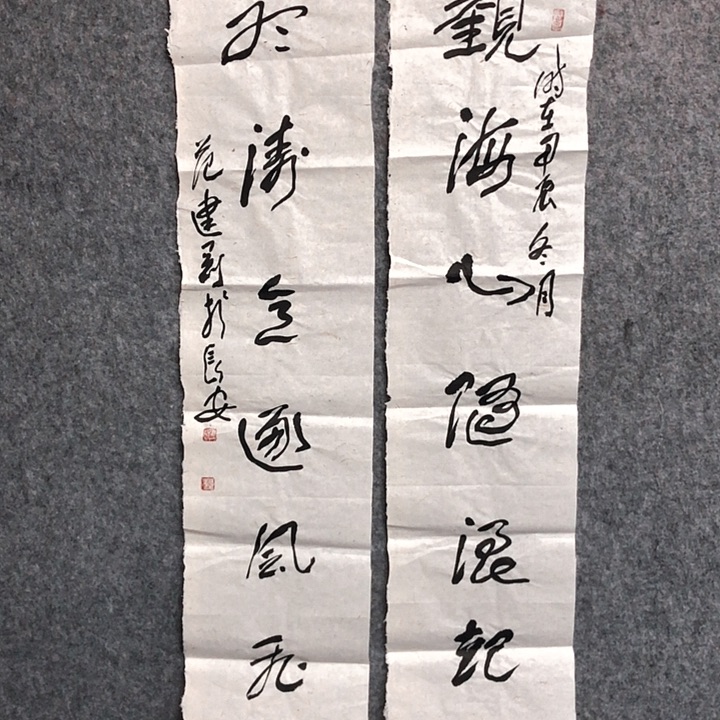 觀海心隨浪起
時在甲辰冬月
聽濤意逐風飛
范建於長安